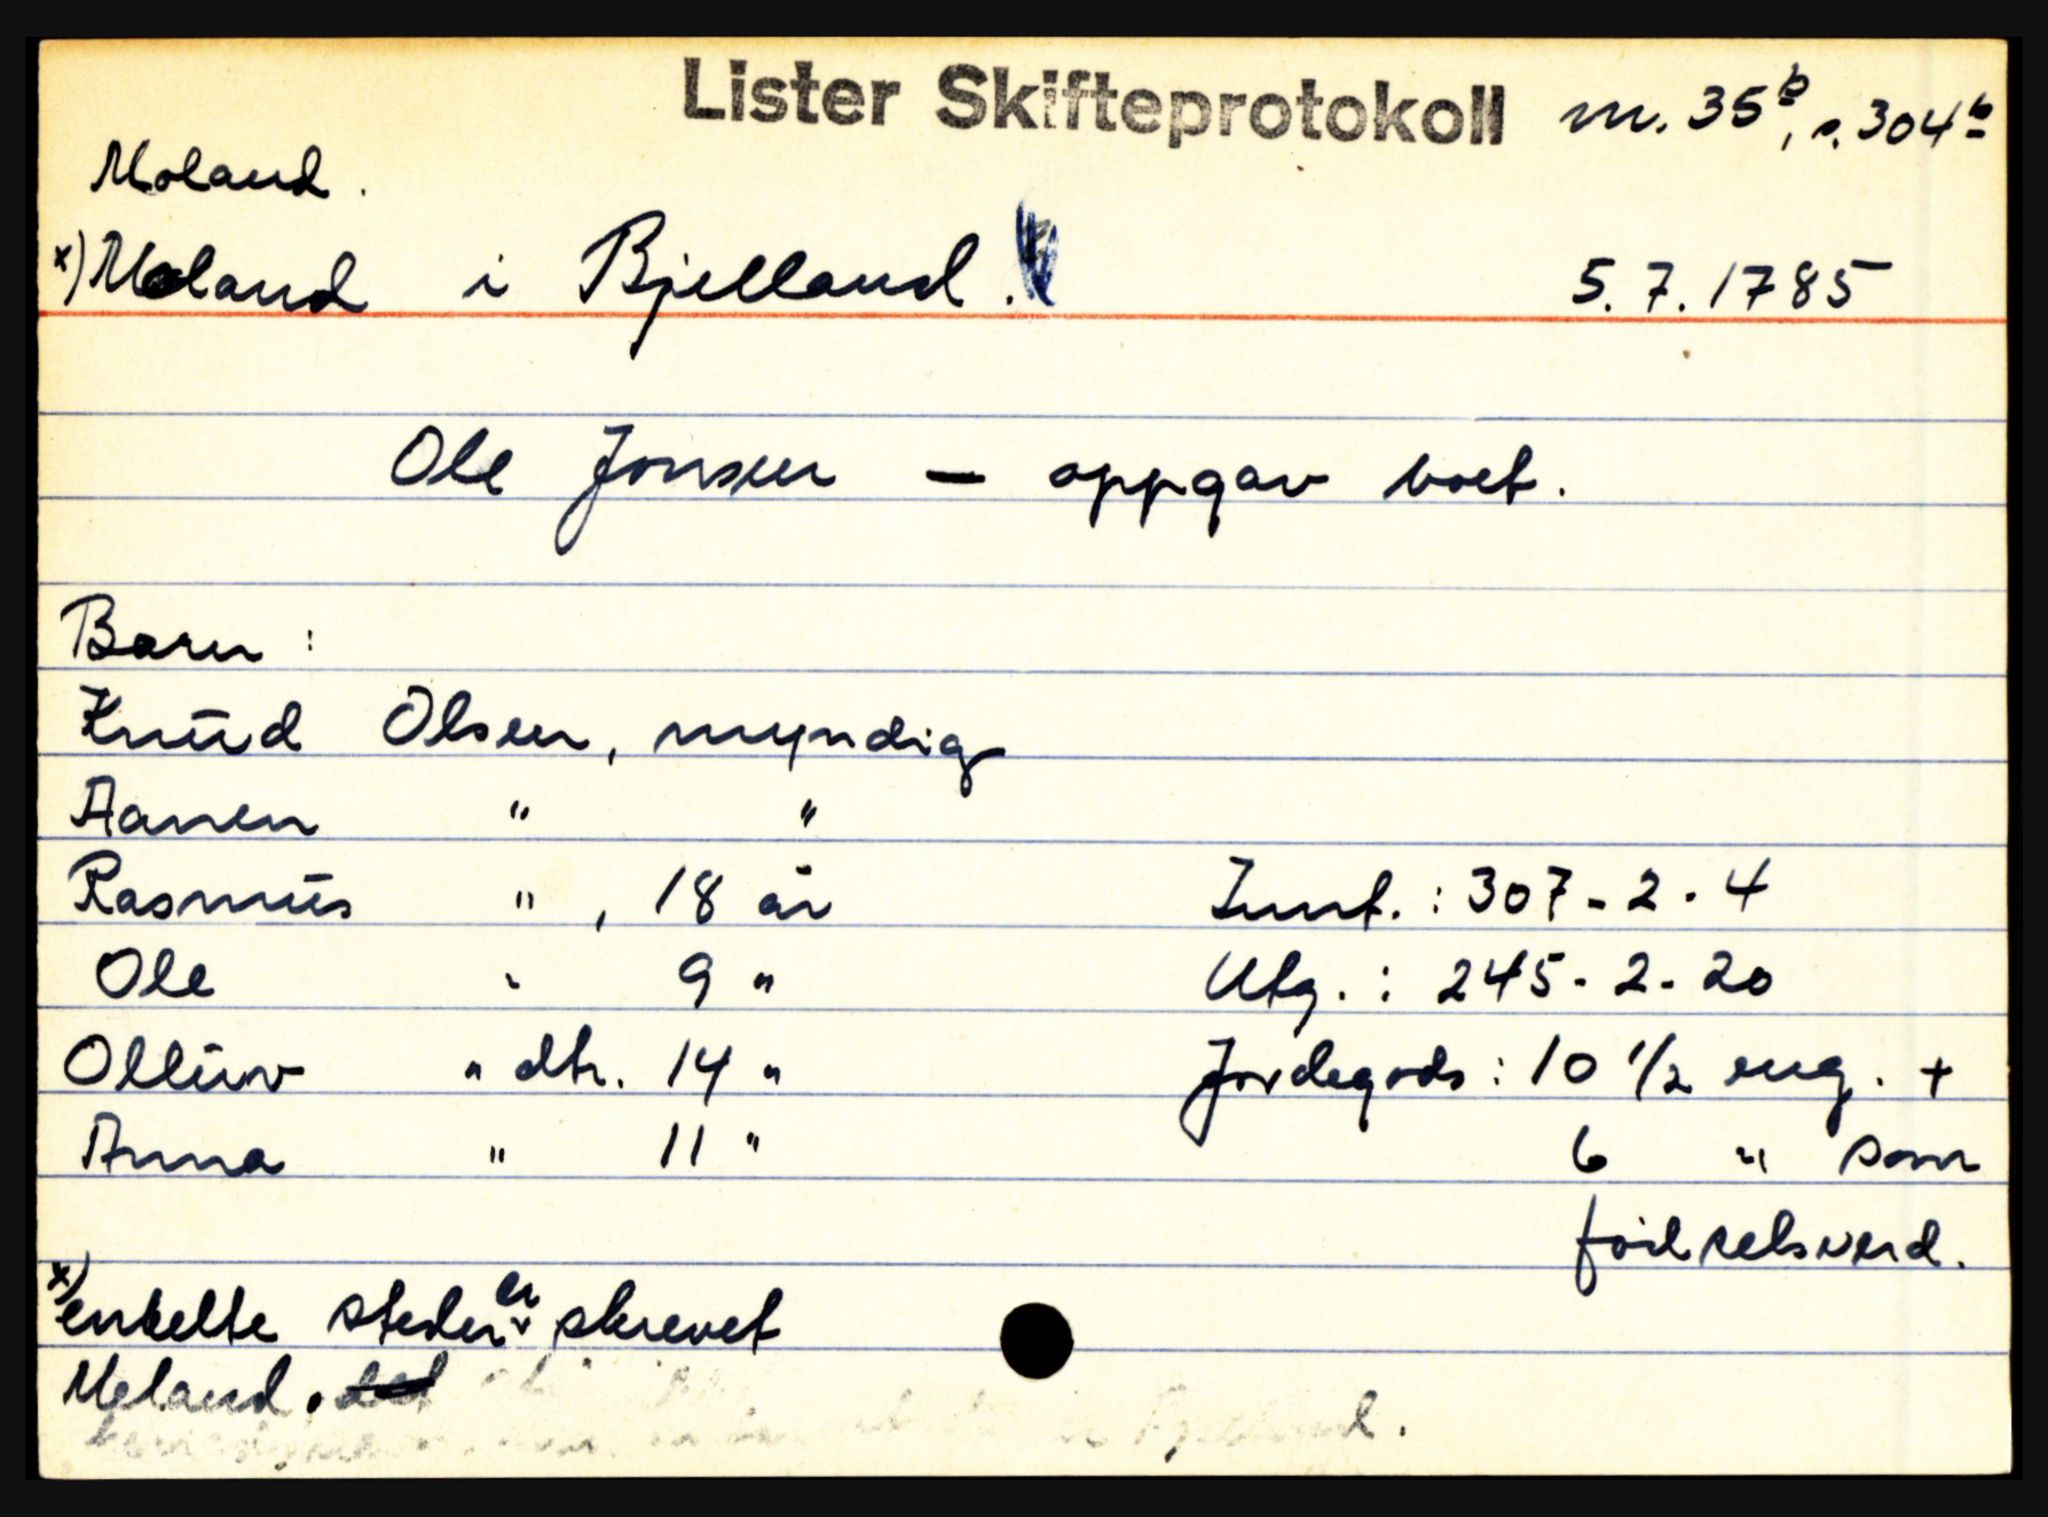 Lister Skifteprotokoll nr. 35b, s. 304b
Moland.
x) Moland i Bjelland. 5.7.1785
Ole Jonsen — oppgav boet.
Barn:
Knud Olsen, myndig
Aanen " "
Rasmus " , 18 år Innt.: 307-2-4
Ole " 9 " Utg.: 245-2-20
Olluv " dtr. 14 " Jordegods: 10 1/2 eng. +
Anna " 11 " 6 " som
födselsverd.
x) enkelte steder er skrevet
Meland.